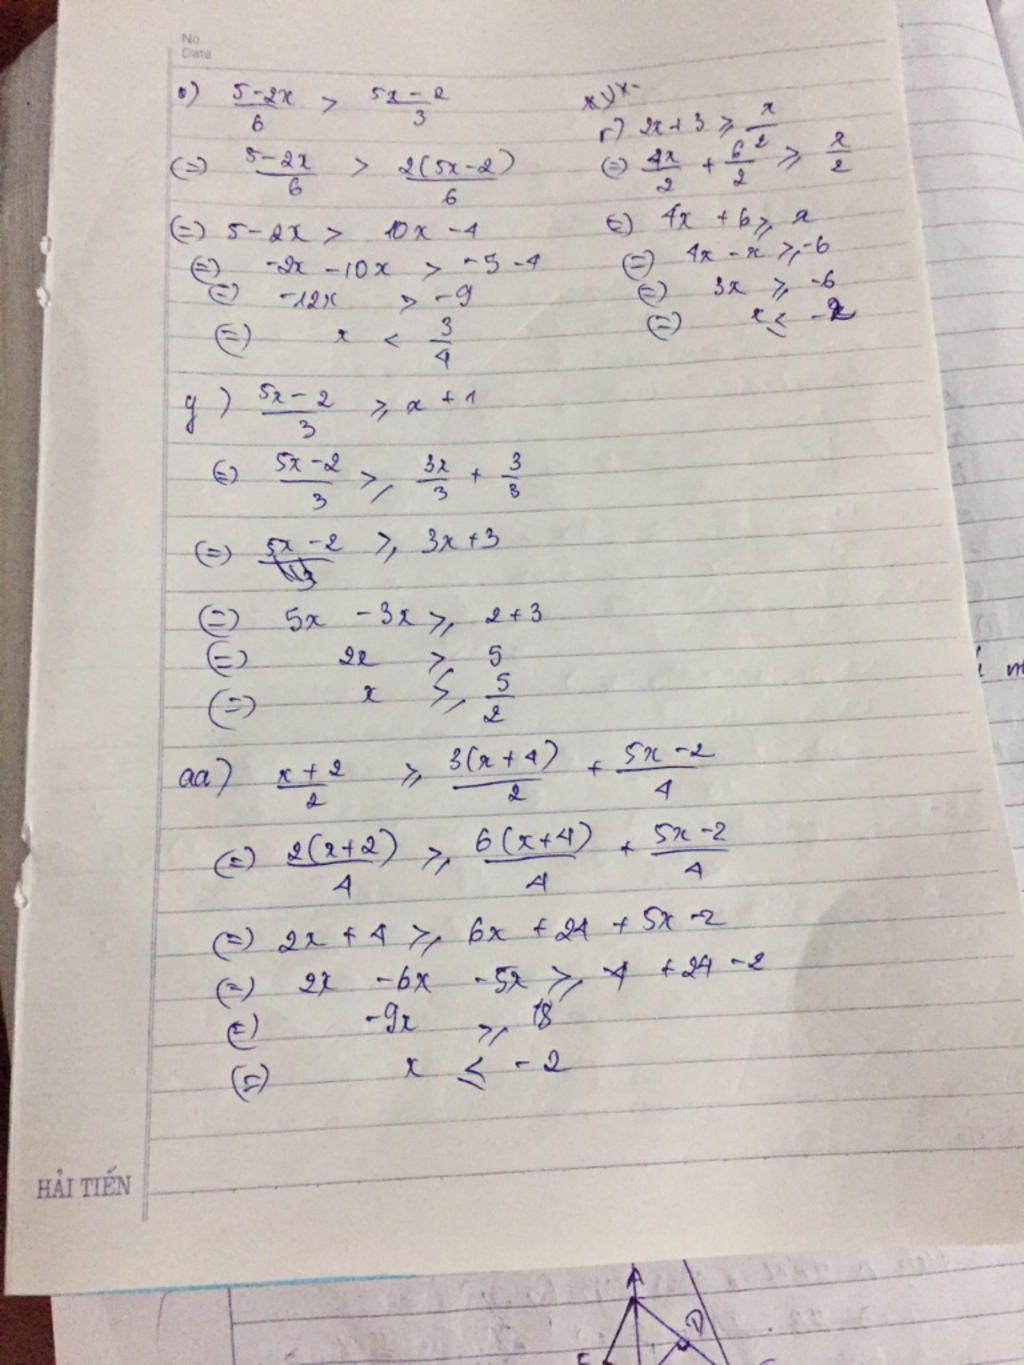 No.
Date
o) (5-2x)/6 > (5x-2)/3
(=) (5-2x)/6 > 2(5x-2)/6
(=) 5-2x > 10x-4
(=) -2x-10x > -5-4
(=) -12x > -9
(=) x < 3/4
r) 2x+3 ⩾ x/2
(=) 4x/2 + 6/2 ⩾ x/2
(=) 4x+6 ⩾ x
(=) 4x-x ⩾ -6
(=) 3x ⩾ -6
(=) x ≤ -2
y) (5x-2)/3 ⩾ x+1
(=) (5x-2)/3 ⩾ 3x/3 + 3/3
(=) 5x-2 ⩾ 3x+3
(=) 5x-3x ⩾ 2+3
(=) 2x ⩾ 5
(=) x ⩾ 5/2
aa) (x+2)/2 ⩾ 3(x+4)/2 + (5x-2)/4
(=) 2(x+2)/4 ⩾ 6(x+4)/4 + (5x-2)/4
(=) 2x+4 ⩾ 6x+24+5x-2
(=) 2x-6x-5x ⩾ -4+24-2
(=) -9x ⩾ 18
(=) x ≤ -2
HẢI TIẾN
A
D